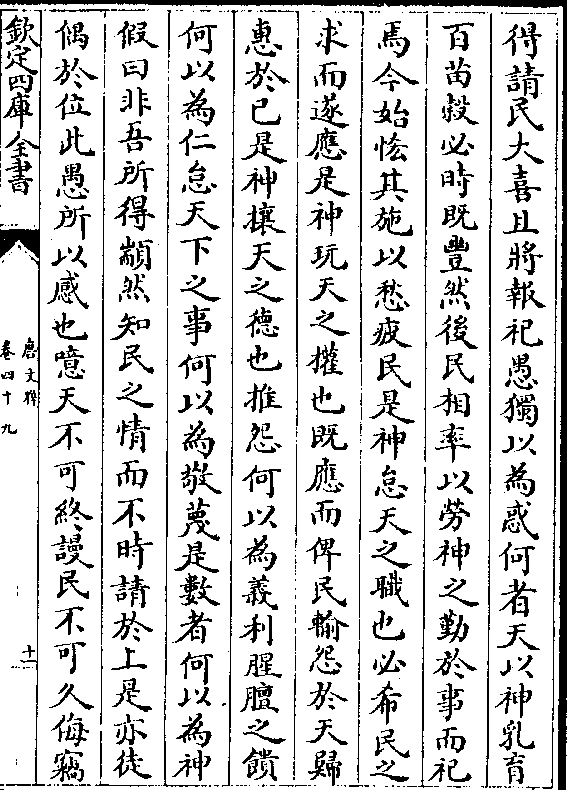 得請民大喜且將報祀愚獨以為惑何者天以神乳育
百苗穀必時既豐然後民相率以勞神之勤於事而祀
焉今始恡其施以愁疲民是神怠天之職也必希民之
求而遂應是神玩天之權也既應而俾民輸怨於天歸
惠於己是神攘天之德也推怨何以為義利腥膻之饋
何以為仁怠天下之事何以為敬蔑是數者何以為神
假曰非吾所得顓然知民之情而不時請於上是亦徒
偶於位此愚所以感也噫天不可終謾民不可久侮竊
欽定四庫全書
唐文粹
卷四十九
十二